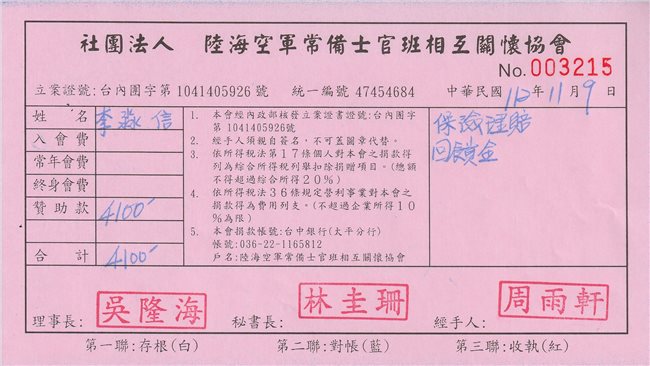 社團法人 陸海空軍常備士官班相互關懷協會
No. 003215
立業證號:台內團字第 1041405926 號 統一編號 47454684 中華民國 112 年 11 月 9 日
姓名 李淼信
入會費
常年會費
終身會費
贊助款 4100-
合計 4100-
1. 本會經內政部核發立業證書證號:台內團字
第 1041405926號
2. 經手人須親自簽名,不可蓋圖章代替。
3. 依所得稅法第17條個人對本會之捐款得
列為綜合所得稅列舉扣除捐贈項目。(總額
不得超過綜合所得20%)
4. 依所得稅法36條規定營利事業對本會之
捐款得為費用列支。(不超過企業所得10
%為限)
5. 本會捐款帳號:台中銀行(太平分行)
帳號:036-22-1165812
戶名:陸海空軍常備士官班相互關懷協會
保險理賠
回饋金
理事長: 吳隆海 秘書長: 林圭珊 經手人: 周雨軒
第一聯:存根(白) 第二聯:對帳(藍) 第三聯:收執(紅)